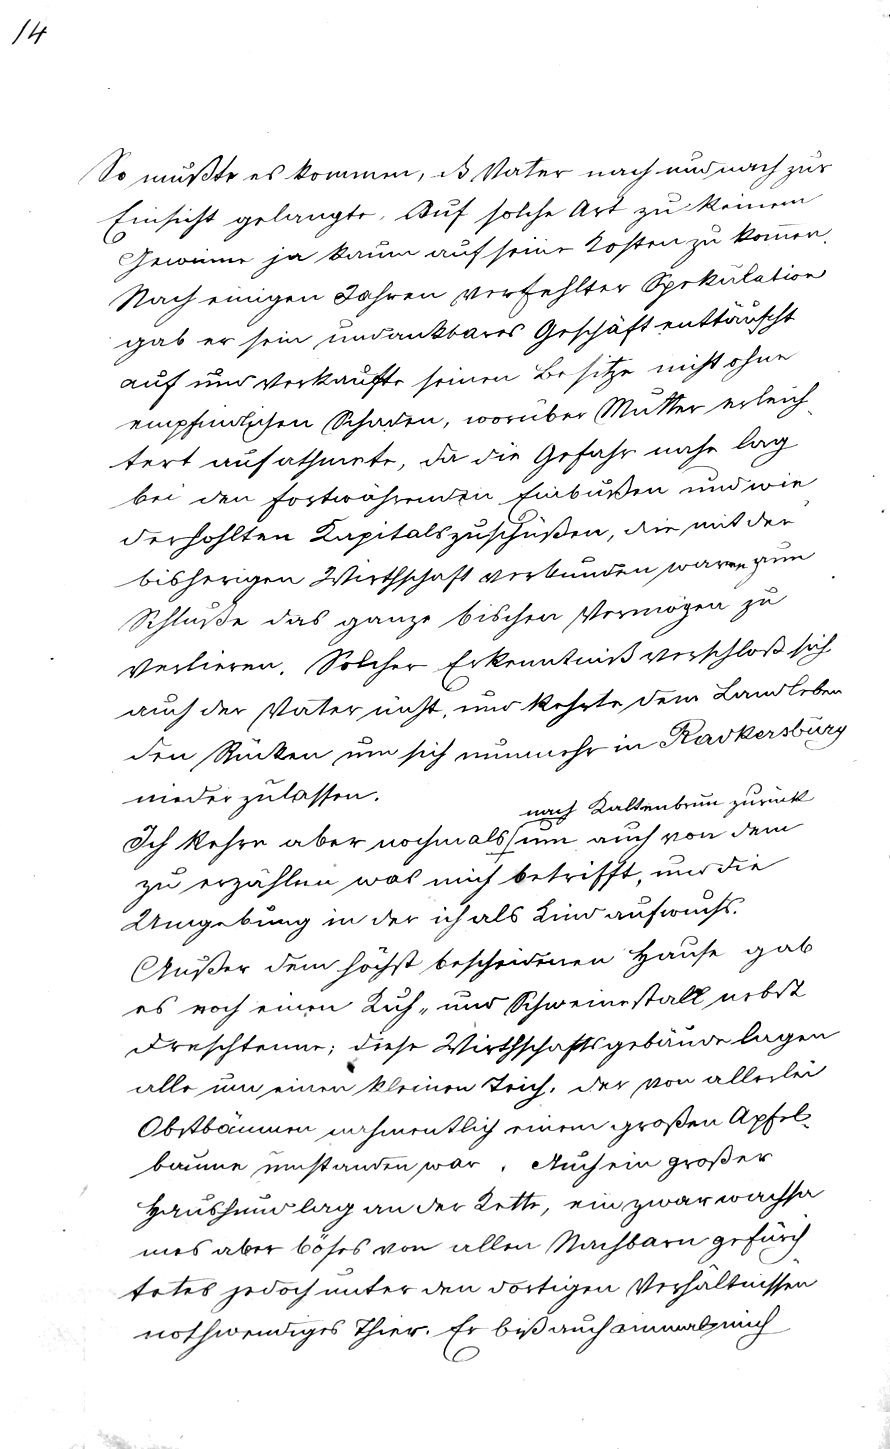 14
So mußte es kommen, dß Vater nach und nach zur
Einsicht gelangte, Auf solche Art zu keinem
Gewinne ja kaum auf seine Kosten zu kom̄en.
Nach einigen Jahren verfehlter Spekulation
gab er sein undankbares Geschäft enttäuscht
auf und verkaufte seinen Besitze nicht ohne
empfindlichen Schaden, worüber Mutter erleich¬
tert aufathmete, da die Gefahr nahe lag
bei den fortwährenden Einbußen und wie¬
derhohlten Kapitalszuschüßen, die mit der
bisherigen Wirthschaft verbunden waren zum
Schluße das ganze bischen Vermögen zu
verlieren. Solcher Erkenntniß verschloß sich
auch der Vater nicht, und kehrte dem Landleben
den Rücken um sich nunmehr in Radkersburg
niederzulassen.
nach Kaltenbrun zurück
Ich kehre aber nochmals um auch von dem
zu erzählen was mich betrifft, und die
Umgebung in der ich als Kind aufwuchs.
Außer dem höchst bescheidenen Hause gab
es noch einen Kuh„ und Schweinestall nebst
Dreschtenne; diese Wirthschaftsgebäude lagen
alle um einen kleinen Teich, der von allerlei
Obstbäumen nahmentlich einem großen Apfel¬
baume umstanden war. Auch ein großer
Haushund lag an der Kette, ein zwar wachsa
mes aber böses von allen Nachbarn gefürch
tetes jedoch unter den dortigen Verhältnissen
nothwendiges Thier. Er biß auch einmal mich